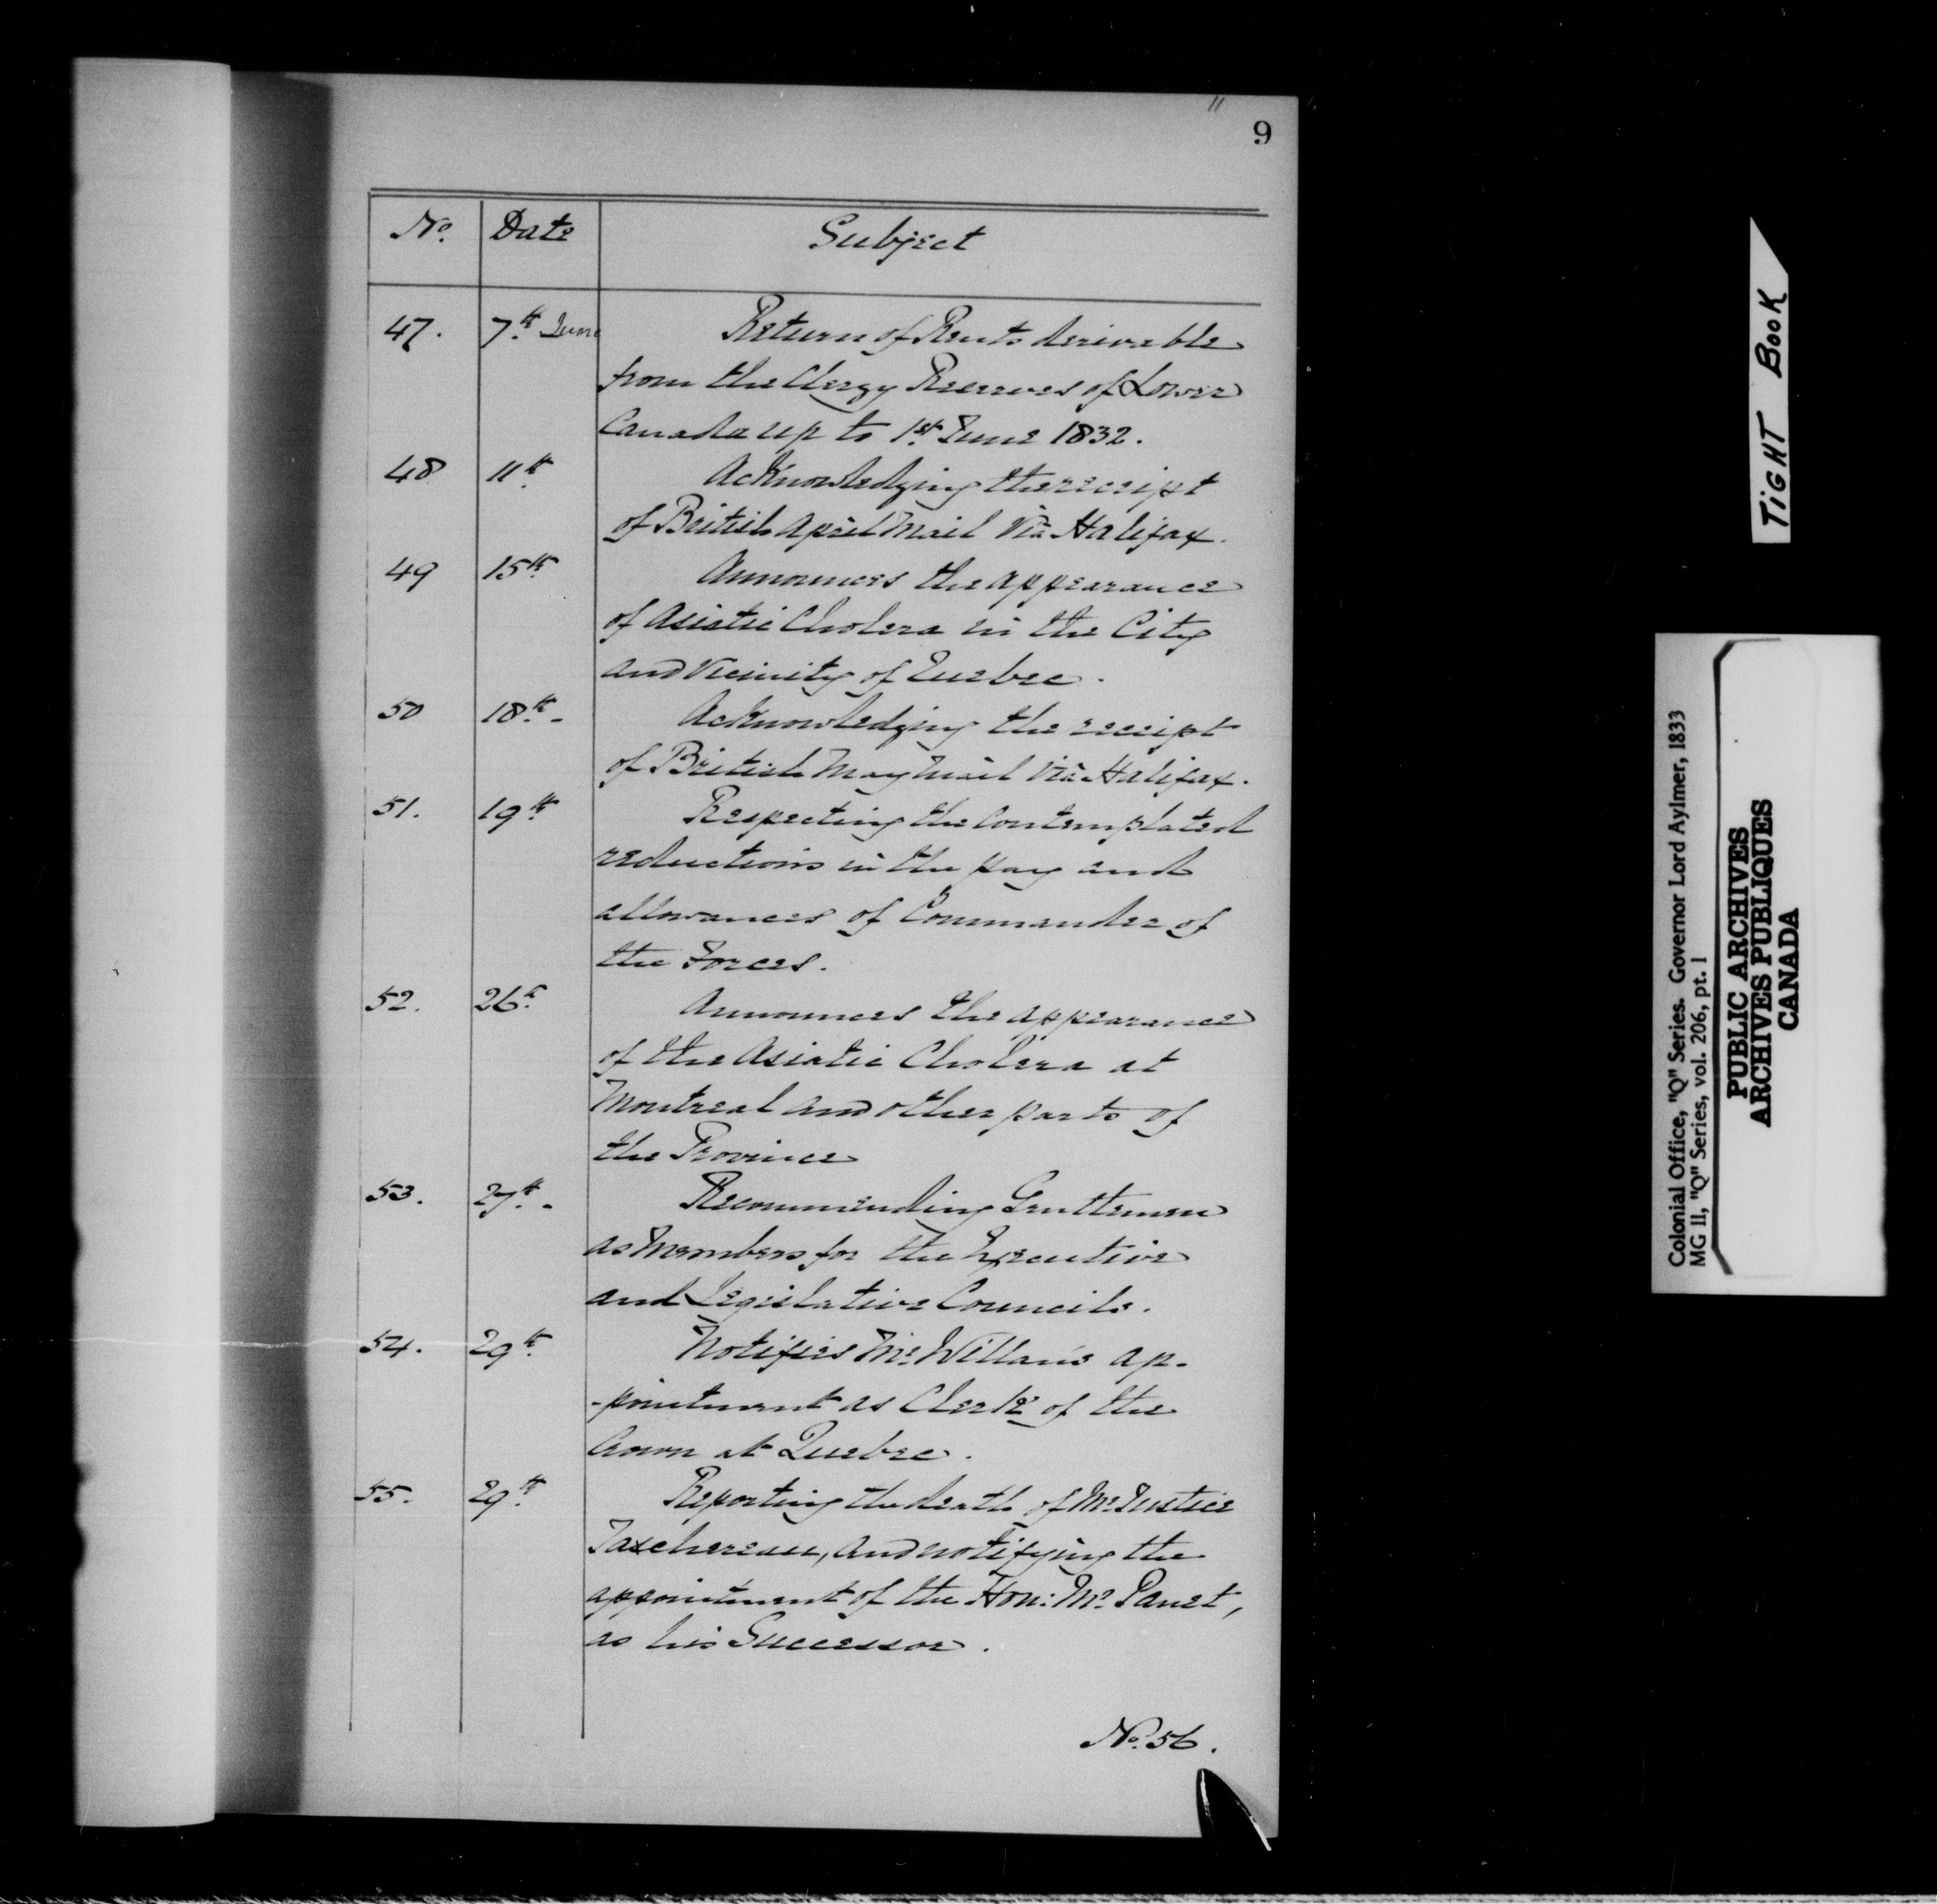 11
9
No. Date Subject
47. 7th June Return of Rents derivable
from the Clergy Reserves of Lower
Canada up to 1st June 1832.
48 11th Acknowledging the receipt
of British April Mail Via Halifax.
49 15th Announces the appearance
of Asiatic Cholera in the City
and Vicinity of Quebec.
50 18th - Acknowledging the receipt
of British May Mail Via Halifax.
51. 19th Respecting the Contemplated
reductions in the pay and
allowances of Commander of
the Forces.
52. 26th Announces the appearance
of the Asiatic Cholera at
Montreal and other parts of
the Province
53. 27th - Recommending Gentlemen
as Members for the Executive
and Legislative Councils.
54. 29th Notifies Mr. Willan's ap-
-pointment as Clerk of the
Crown at Quebec.
55. 29th Reporting the death of Mr. Justice
Taschereau, and notifying the
appointment of the Hon: Mr. Panet,
as his Successor.
No. 56.
TIGHT BOOK
Colonial Office, "Q" Series. Governor Lord Aylmer, 1833
MG 11, "Q" Series, vol. 206, pt. 1
PUBLIC ARCHIVES
ARCHIVES PUBLIQUES
CANADA